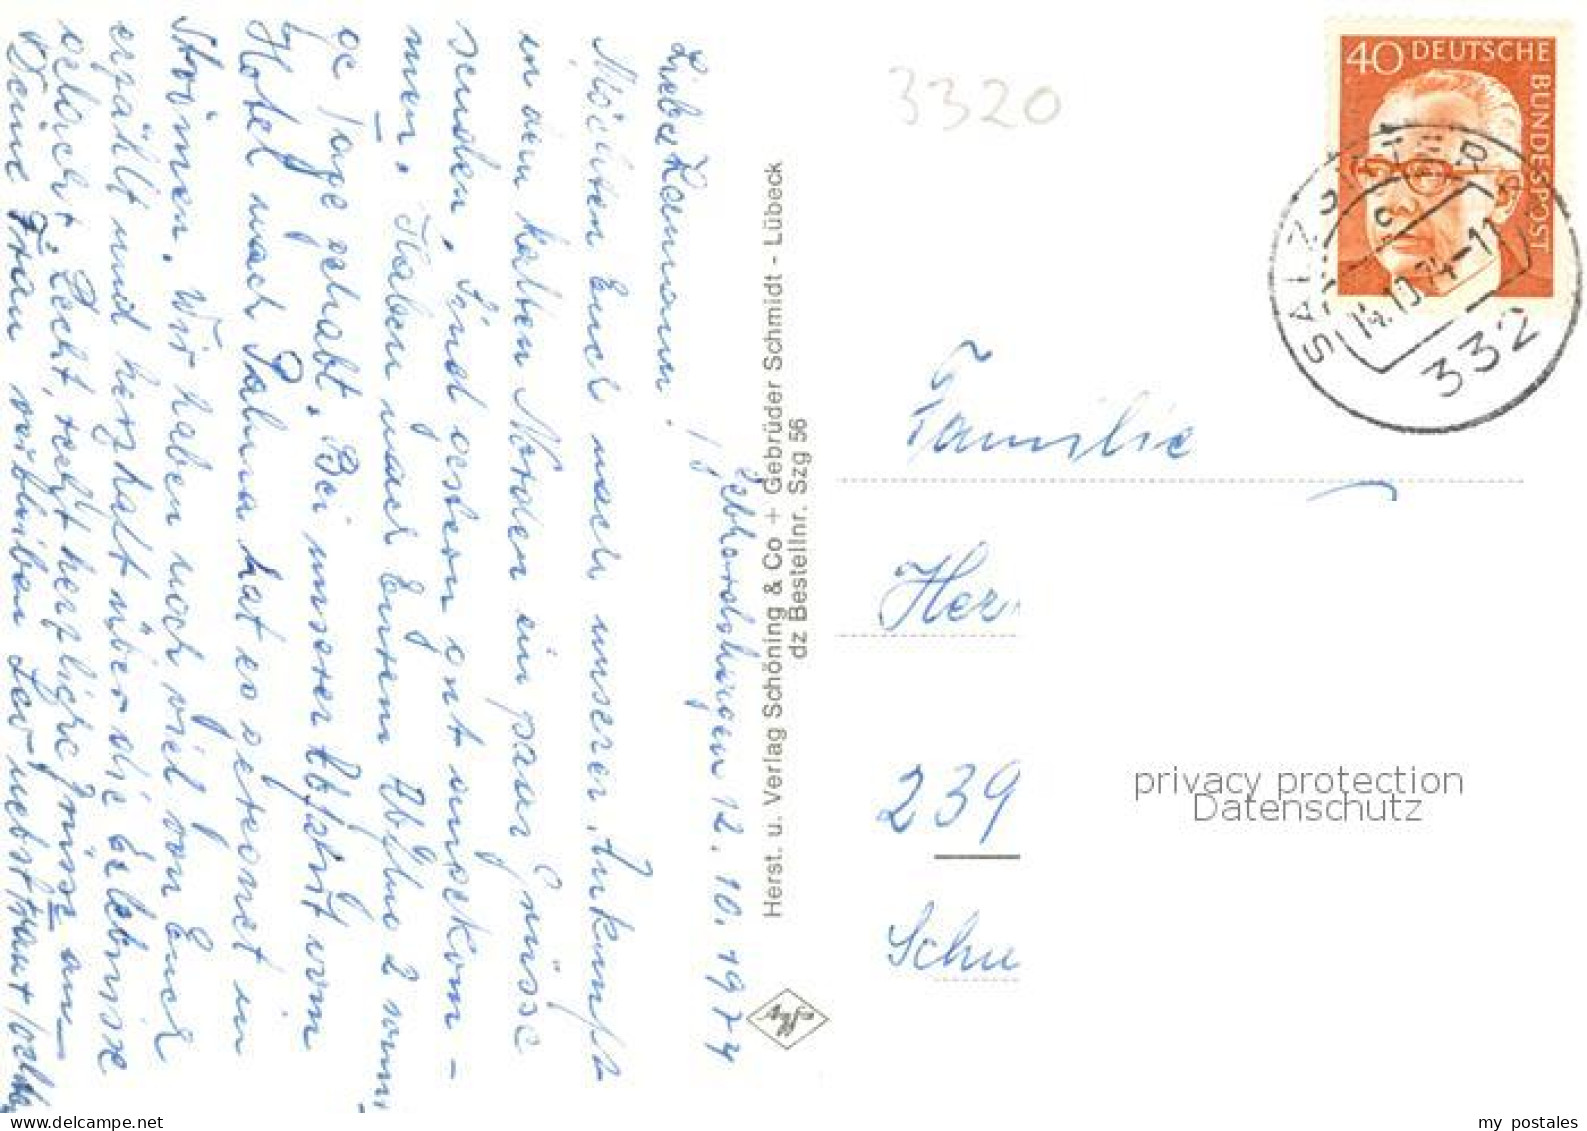 Gebhardshagen 12.10.1974
Liebe Hermann!
Möchten Euch nach unserer Ankunft
in dem kalten Norden ein paar Grüsse
senden. Sind gestern gut angekom-
men. Haben nach Eurem Abflug 2 sonni
ge Tage gehabt. Bei unserer Abfahrt vom
Hotel nach Palma hat es geregnet in
Strömen. Wir haben noch viel von Euch
erzählt und herzhaft über die Erlebnisse
gelacht. Recht, recht herzliche Grüsse an
Deine Frau
Herst. u. Verlag Schöning & Co + Gebrüder Schmidt - Lübeck
dz Bestellnr. Szg 56
3320
40 DEUTSCHE BUNDESPOST
SALZGITTER
14.10.74-11
332
Familie
Her
239
Schu
privacy protection
Datenschutz
my postales